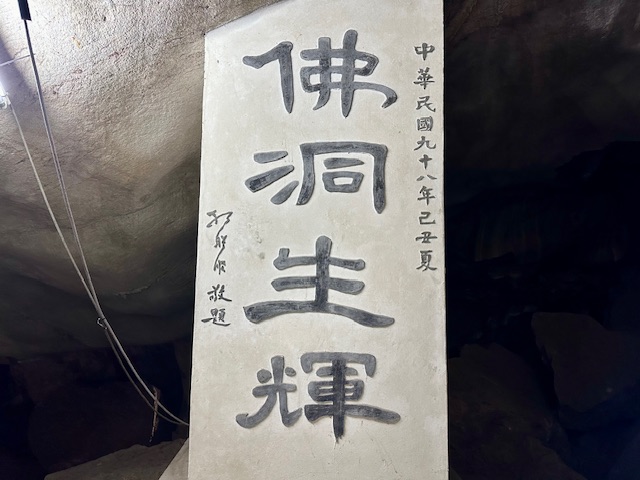 中華民國九十八年己丑夏
佛洞生輝
敬題